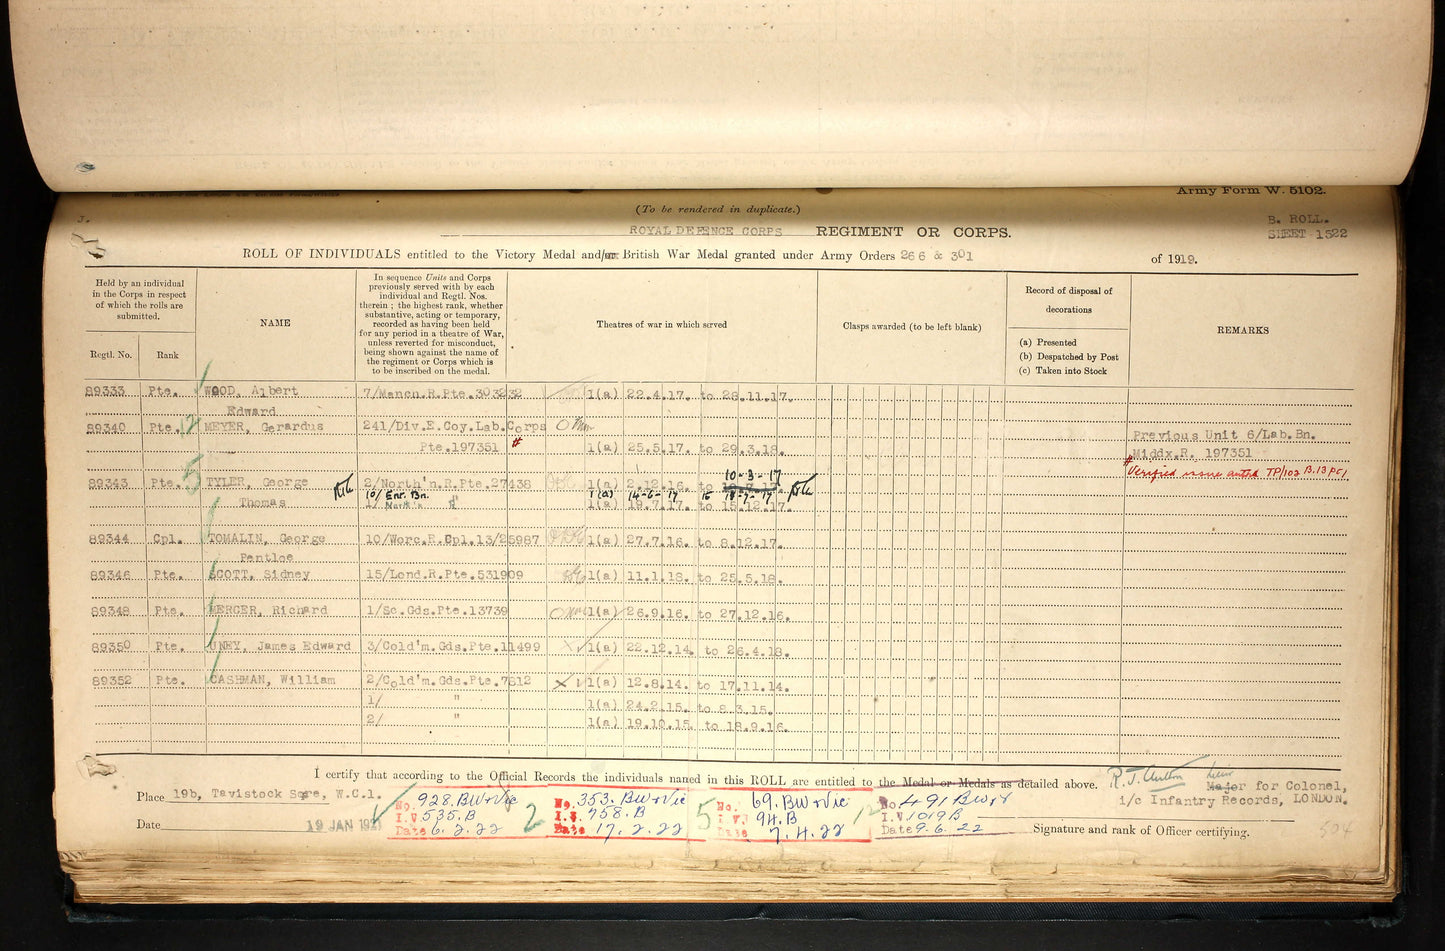 Army Form W. 5102.
(To be rendered in duplicate.)
B. ROLL.
ROYAL DEFENCE CORPS REGIMENT OR CORPS.
SHEET 1522
ROLL OF INDIVIDUALS entitled to the Victory Medal and/or British War Medal granted under Army Orders 266 & 301 of 1919.
Held by an individual
in the Corps in respect
of which the rolls are
submitted.
Regtl. No. Rank
NAME
In sequence Units and Corps
previously served with by each
individual and Regtl. Nos.
therein ; the highest rank, whether
substantive, acting or temporary,
recorded as having been held
for any period in a theatre of War,
unless reverted for misconduct,
being shown against the name of
the regiment or Corps which is
to be inscribed on the medal.
Theatres of war in which served
Clasps awarded (to be left blank)
Record of disposal of
decorations
(a) Presented
(b) Despatched by Post
(c) Taken into Stock
REMARKS
89333 Pte. WOOD, Albert 7/Manch.R.Pte.303232 1(a) 22.4.17. to 28.11.17.
Edward
89340 Pte. 12 MEYER, Gerardus 241/Div.E.Coy.Lab.Corps
Previous Unit 6/Lab.Bn.
Pte.197351 # 1(a) 25.5.17. to 29.3.18. Middx.R. 197351
# Verified issue auth TP/102 B.13 PC/
10-3-17
89343 Pte. 5 TYLER, George 2/North'n.R.Pte.27438 1(a) 2.12.16. to 18.7.17.
10/ Enr. Bn. 1(a) 14-6-17 to 18-7-17
Thomas 1/ North'n " 1(a) 19.7.17. to 15.12.17.
89344 Cpl. TOMALIN, George 10/Worc.R.Cpl.13/25987 1(a) 27.7.16. to 8.12.17.
Pentloe
89346 Pte. SCOTT, Sidney 15/Lond.R.Pte.531909 1(a) 11.1.18. to 25.5.18.
89348 Pte. MERCER, Richard 1/Sc.Gds.Pte.13739 1(a) 26.9.16. to 27.12.16.
89350 Pte. UNEY, James Edward 3/Cold'm.Gds.Pte.11499 X 1(a) 22.12.14. to 26.4.18.
89352 Pte. CASHMAN, William 2/Cold'm.Gds.Pte.7812 X 1(a) 12.8.14. to 17.11.14.
1/ " 1(a) 24.2.15. to 8.3.15.
2/ " 1(a) 19.10.15. to 18.9.16.
I certify that according to the Official Records the individuals named in this ROLL are entitled to the Medal or Medals as detailed above.
Place 19b, Tavistock Sqre, W.C.1.
Major for Colonel,
i/c Infantry Records, LONDON.
Date 19 JAN 192
Signature and rank of Officer certifying.
No. 928. BW+Vic
I.V. 535. B
Date 6.2.22
2
No. 353. BW+Vic
I.V. 758. B
Date 17.2.22
5
No. 69. BW+Vic
I.V. 94. B
Date 7.4.22
12
No. 491 BW+V
I.V. 1019 B
Date 9.6.22
504